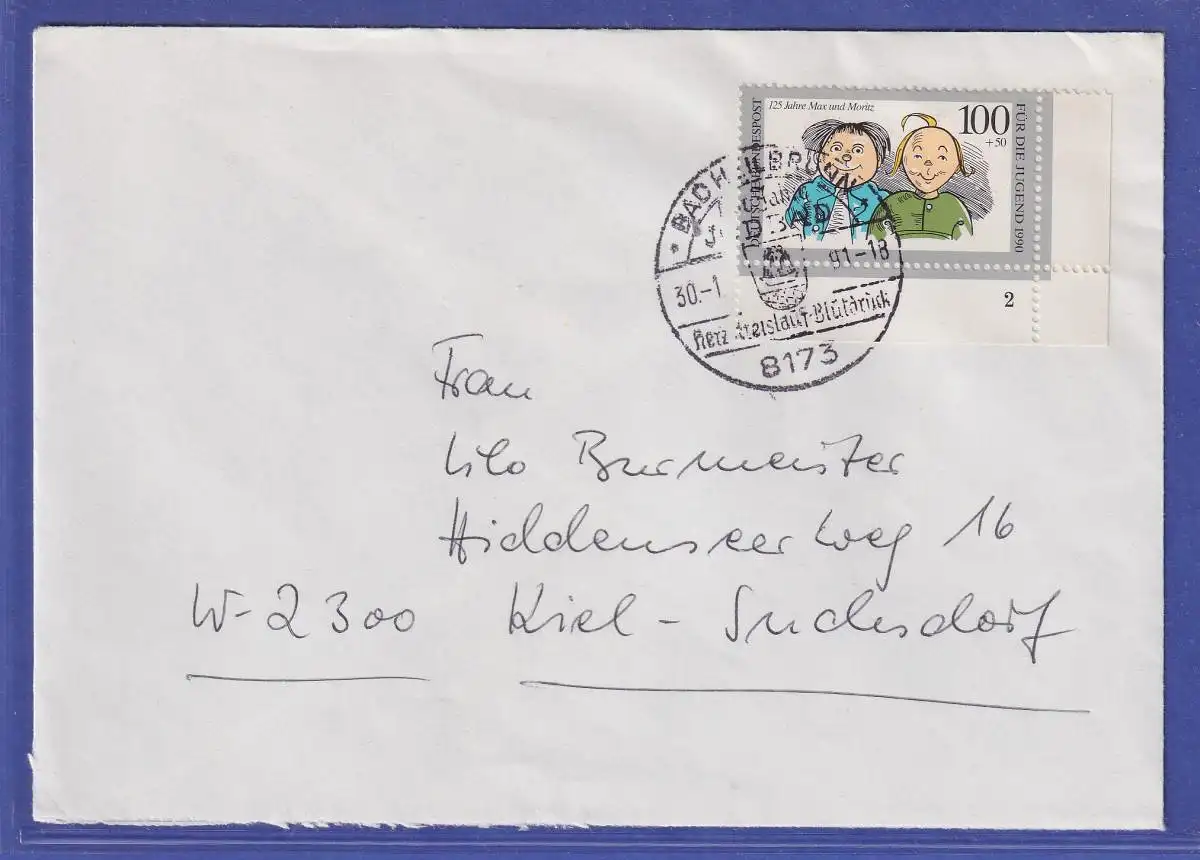 125 Jahre Max und Moritz
100
+50
DEUTSCHE BUNDESPOST
FÜR DIE JUGEND 1990
2
* BAD HEILBRUNN *
30.-1
91-18
Herz-Kreislauf-Blutdruck
8173
Frau
Lilo Burmeister
Hiddenseer Weg 16
W-2300 Kiel - Suchsdorf